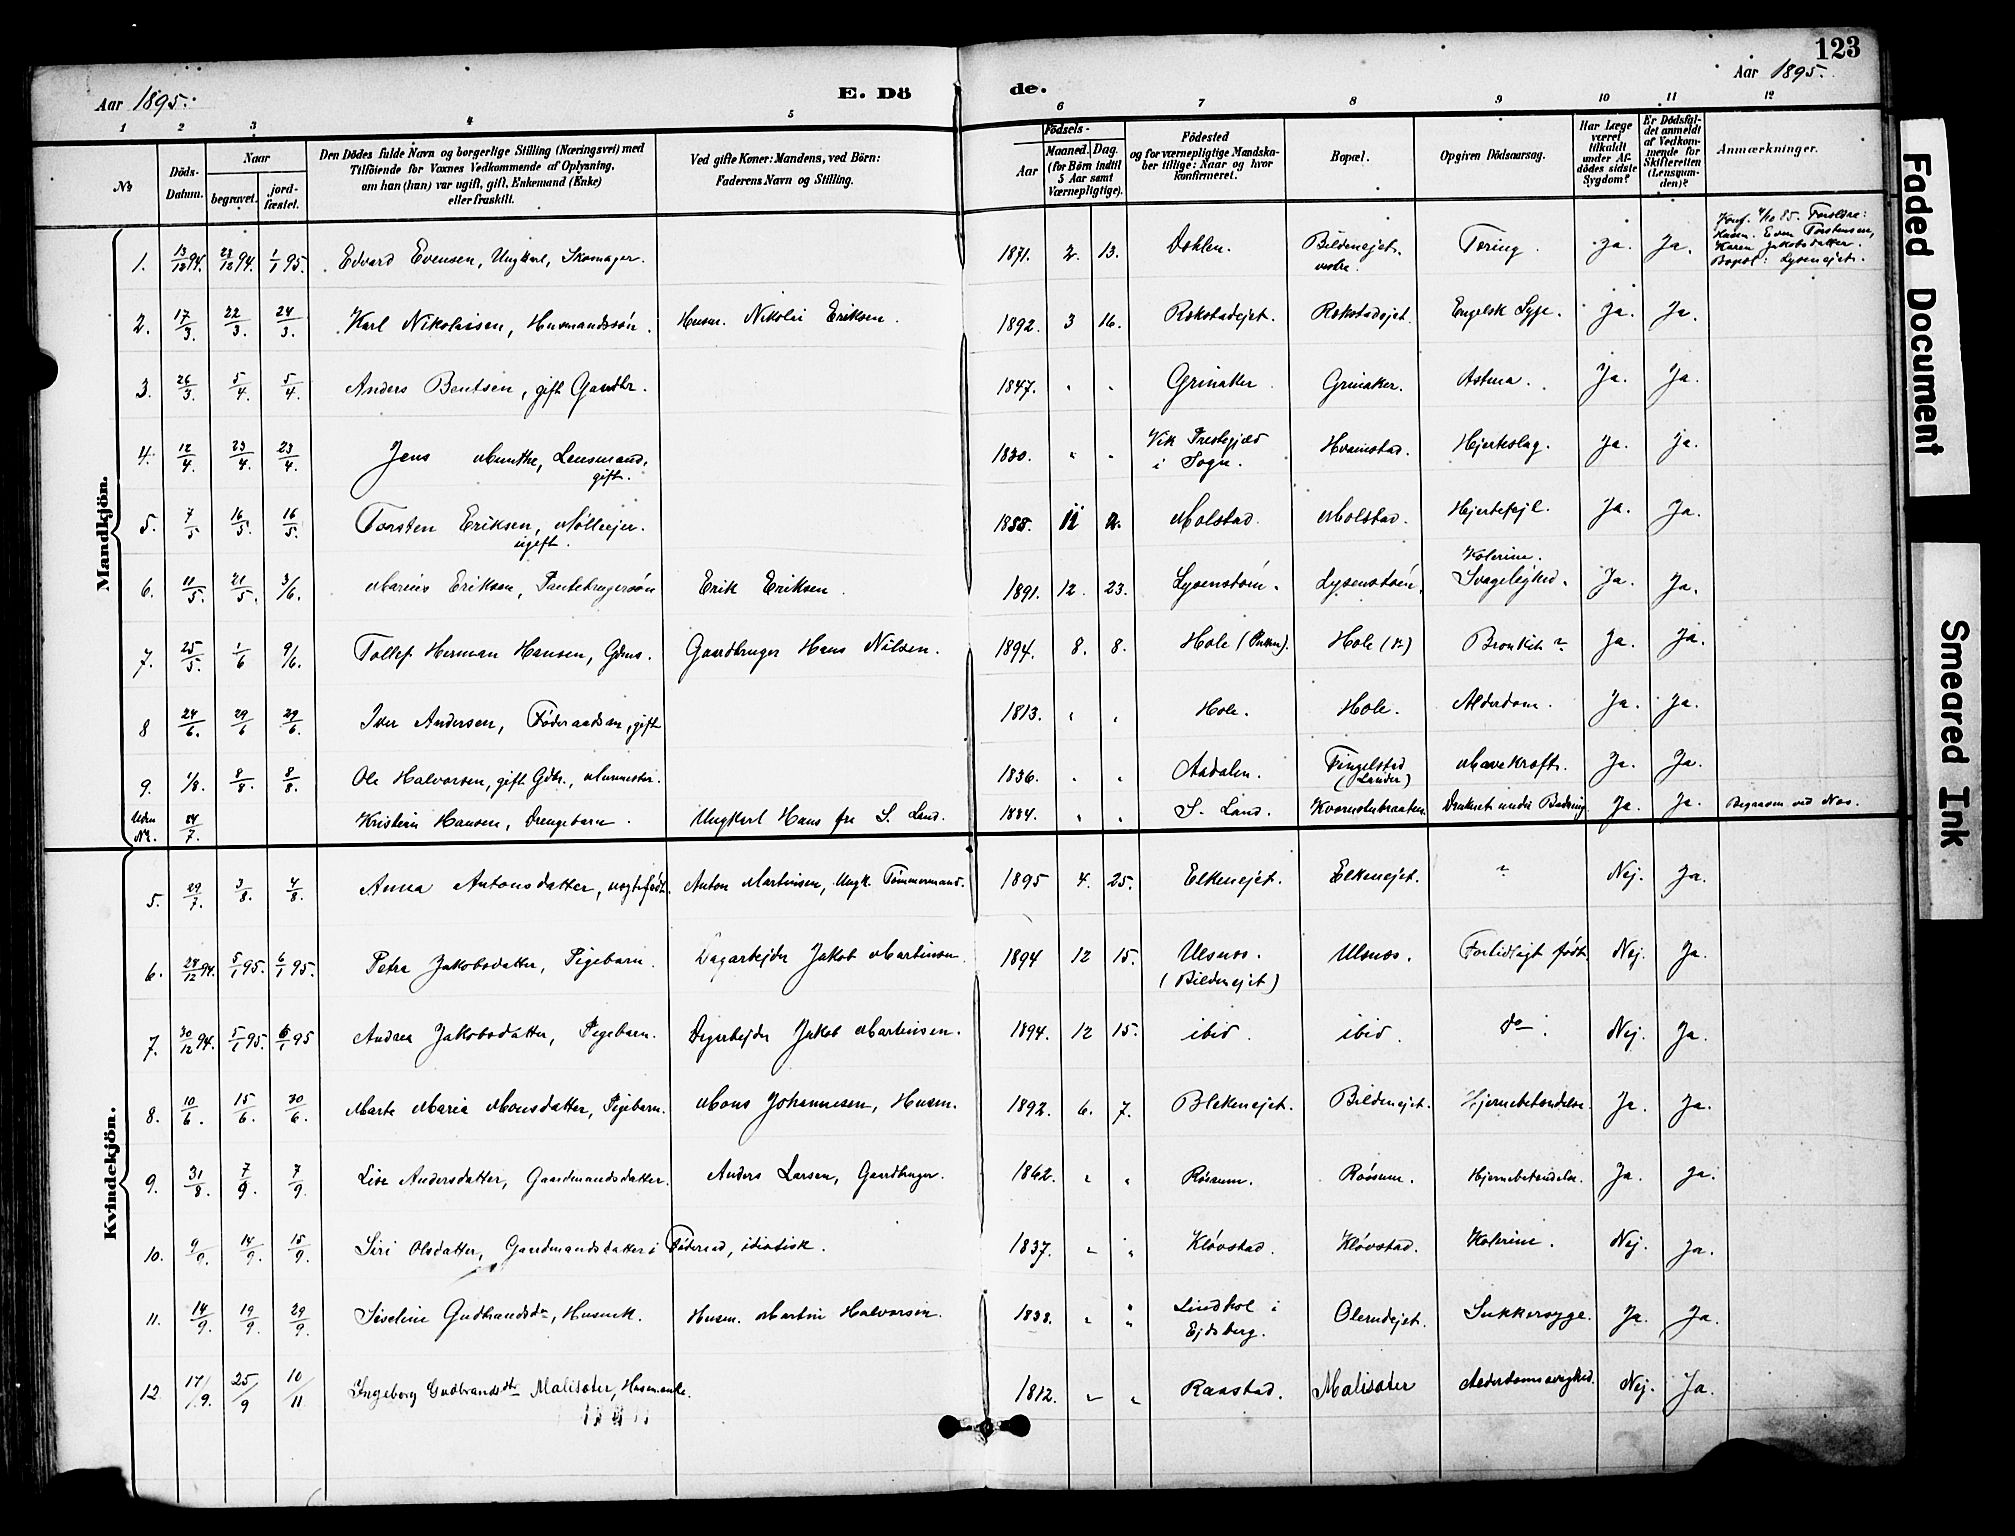 123
Aar 1895.
E. Dö
de.
Aar 1895.
1 2 3 4 5 6 7 8 9 10 11 12
No
Döds-
Datum.
Naar
begravet.
jord-
fæstet.
Den Dödes fulde Navn og borgerlige Stilling (Næringsvei) med
Tilföiende for Voxnes Vedkommende af Oplysning,
om han (hun) var ugift, gift, Enkemand (Enke)
eller fraskilt.
Ved gifte Koner: Mandens, ved Börn:
Faderens Navn og Stilling.
Födsels-
Aar
Maaned. Dag.
(for Börn indtil
5 Aar samt
Værnepligtige).
Födested
og for værnepligtige Mandska-
ber tillige: Naar og hvor
konfirmeret.
Bopæl.
Opgiven Dödsaarsag.
Har Læge
været
tilkaldt
under Af-
dödes sidste
Sygdom?
Er Dödsfal-
det anmeldt
af Vedkom-
mende for
Skifteretten
(Lensman-
den)?
Anmærkninger.
Mandkjön.
1. 13/12 94. 22/12 94. 1/1 95. Edvard Evensen, Ungkarl, Skomager. 1871. 2. 13. Dohlen. Bildenejet. vestre. Tæring. Ja. Ja. Konf. 4/10 85. Forældre: Husm. Even Torstensen, Karen Jakobsdatter. Bopæl: Lysenejet.
2. 17/3. 22/3. 24/3. Karl Nikolaisen, Husmandssön. Husm. Nikolai Eriksen. 1892. 3 16. Rokstadejet. Rokstadejet. Engelsk Syge. Ja. Ja.
3. 26/3. 5/4. 5/4. Anders Bentsen, gift Gaardbr. 1847. " " Grinaker. Grinaker. Astma. Ja. Ja.
4. 12/4. 23/4. 23/4. Jens Munthe, Lensmand, gift. 1830. " " Vik Prestegjæld i Sogn. Hvamstad. Hjerteslag. Ja. Ja.
5. 7/5 16/5. 16/5. Torsten Eriksen, Mölleejer. ugift. 1855. 11 2. Molstad. Molstad. Hjertefejl. Ja. Ja.
6. 11/5. 21/5. 3/6. Marius Eriksen, Pantebrugersön Erik Eriksen. 1891. 12. 23. Lysenstøen. Lysenstøen. Kolerine. Svagelighed. Ja. Ja.
7. 25/5. 1/6 9/6. Tollef Herman Hansen, Gdms. Gaardbruger Hans Nilsen. 1894. 8. 8. Hole Hole Bronkit Ja. Ja.
8 24/6. 29/6 29/6. Iver Andersen, Føderaadsm, gift 1813. " " Hole. Hole. Alderdom. Ja. Ja.
9. 1/8. 8/8. 8/8. Ole Halvorsen, gift Gdbr., Murmester. 1836. " " Aadalen. Tingelstad Mavekræft. Ja. Ja.
Uden Nr. 24/7. Kristian Hansen, Drengebarn. Ungkarl Hans fra S. Land. 1884. " " S. Land. Kvernstubraaten. Druknet under Badning Ja. Ja. Begraven ved Nes.
Kvindekjön.
5. 29/7. 3/8. 4/8. Anna Antonsdatter, uegtefødt. Anton Martinsen, Ungk. Tømmermand. 1895 4. 25. Elkenejet. Elkenejet. Nej. Ja.
6. 28/12 94. 5/1 95. 6/1 95. Petra Jakobsdatter, Pigebarn. Dagarbejder Jakob Martinsen 1894 12 15. Ulsnes. (Bildenejet) Ulsnes. Fortidligt født Nej. Ja.
7. 30/12 94. 5/1 95. 6/1 95 Andrea Jakobsdatter, Pigebarn. Dagarbejder Jakob Martinsen. 1894. 12 15. ibid. ibid. do. Nej. Ja.
8. 10/6. 15/6. 30/6. Marte Maria Monsdatter, Pigebarn. Mons Johannesen, Husm. 1892. 6. 7. Blekenejet. Bildenejet. Hjernebetændelse. Ja. Ja.
9. 31/8. 7/9. 7/9. Lise Andersdatter, Gaardmandsdatter. Anders Larsen, Gaardbruger. 1862. " " Røisum. Røisum. Hjernebetændelse. Ja. Ja.
10. 9/9. 14/9. 15/9. Siri Olsdatter, Gaardmandsdatter i Føderaad, idiotisk. 1837. " " Kløvstad. Kløvstad. Kolerine. Nej. Ja.
11. 14/9. 19/9. 29/9. Søveline Gudbrandsdr, Husmk. Husm. Martin Halvorsen. 1838. " " Lindhol i Ejdsberg. Olerudejet. Sukkersyge. Ja. Ja.
12. 17/9. 25/9 10/11 Ingeborg Gudbrandsdtr Malisæter, Husmenke. 1812. " " Raastad. Malisæter Alderdomssvaghed. Nej. Ja.
Faded Document
Smeared Ink